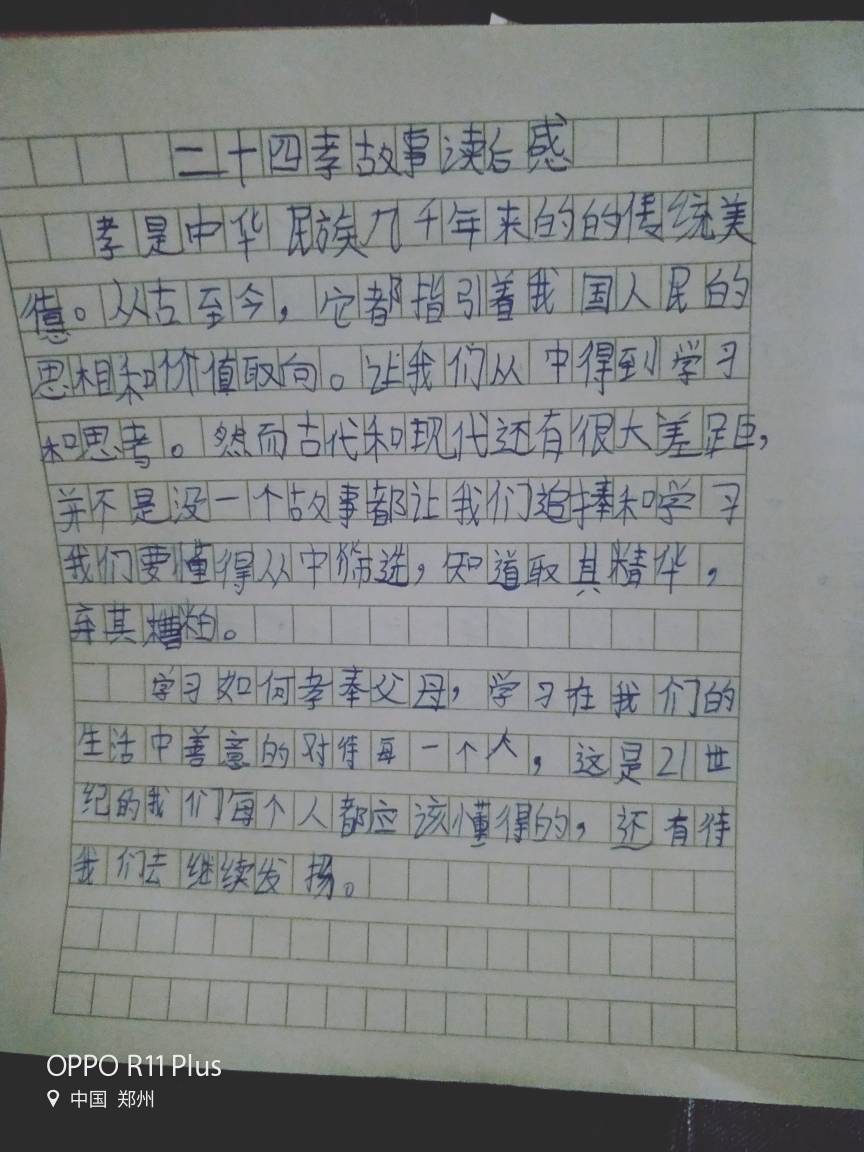 二十四孝故事读后感
孝是中华民族几千年来的的传统美
德。从古至今，它都指引着我国人民的
思相和价值取向。让我们从中得到学习
和思考。然而古代和现代还有很大差距，
并不是没一个故事都让我们追捧和学习
我们要懂得从中筛选，知道取其精华，
弃其糟粕。
学习如何孝奉父母，学习在我们的
生活中善意的对待每一个人，这是21世
纪的我们每个人都应该懂得的，还有待
我们去继续发扬。
OPPO R11 Plus
中国 郑州